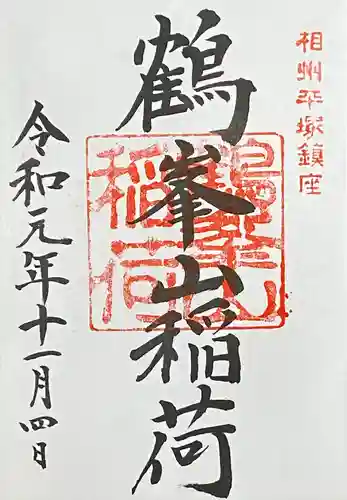 相州平塚鎮座
鶴峯山稲荷
令和元年十一月四日